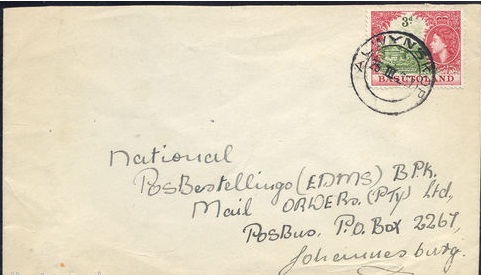 3d
BASUTOLAND
ALWYNSKOP
National
PosBestellings (EDMS) BPK.
Mail ORDERS. (PTY) Ltd.,
PosBus, P.O. Box 2267,
Johannesburg.